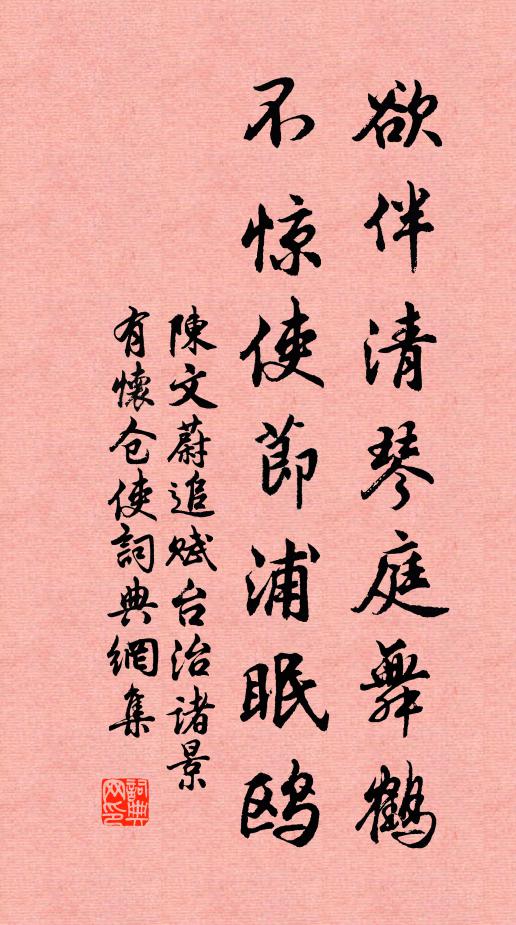 欲伴清琴庭舞鶴
不惊使節浦眠鸥
陳文蔚追赋台治諸景
有懷仓使詞典網集
詞典网印